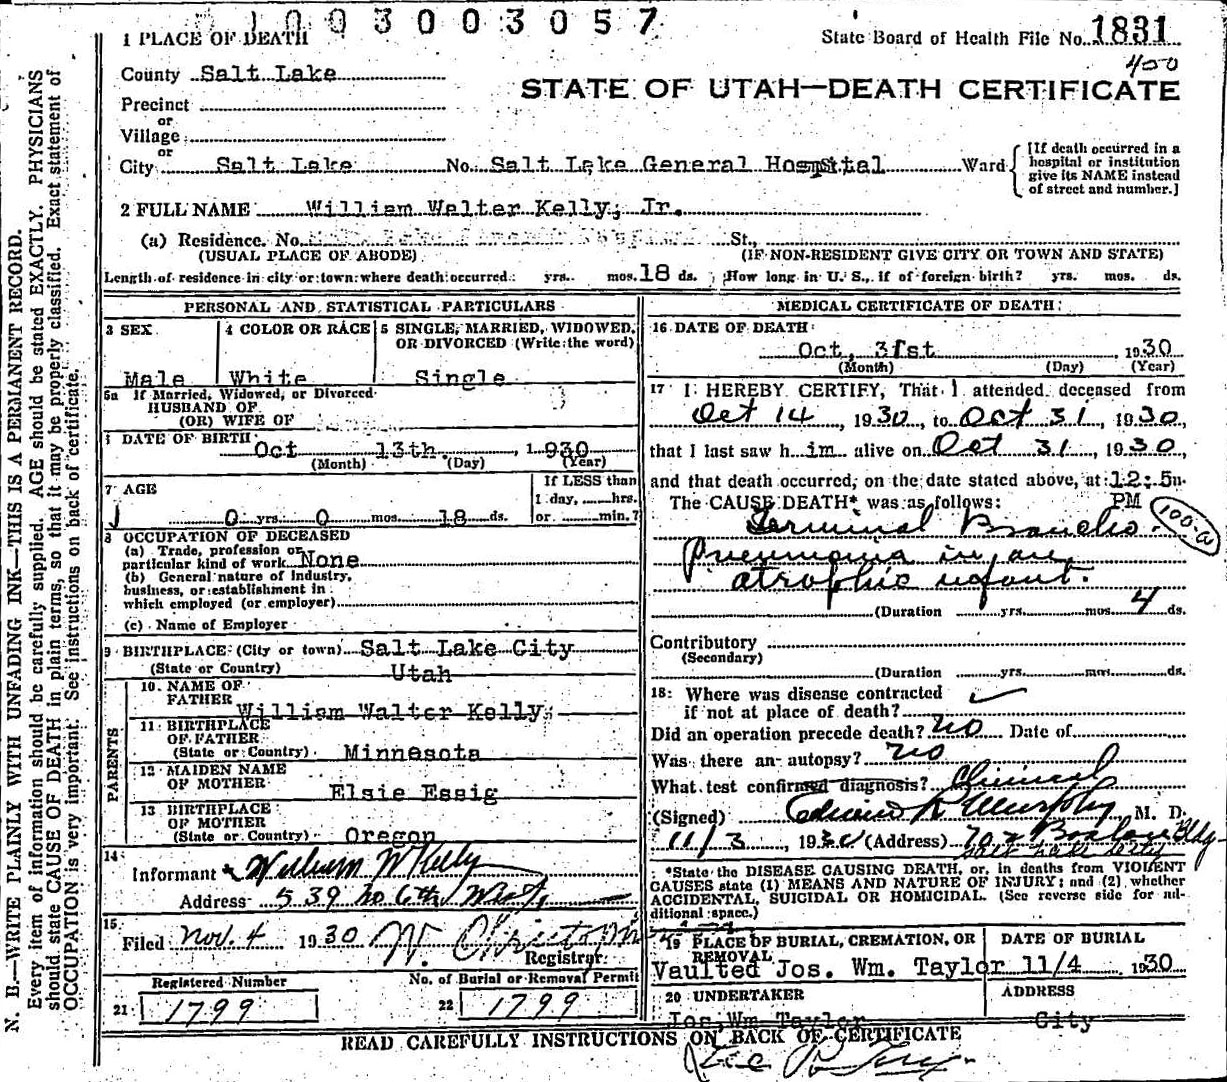 1003003057
1 PLACE OF DEATH
State Board of Health File No. 1831
400
County Salt Lake
STATE OF UTAH—DEATH CERTIFICATE
Precinct
or
Village
or
City Salt Lake No. Salt Lake General Hospital Ward
[If death occurred in a hospital or institution give its NAME instead of street and number.]
2 FULL NAME William Walter Kelly, Jr.
(a) Residence. No. St.,
(USUAL PLACE OF ABODE) (IF NON-RESIDENT GIVE CITY OR TOWN AND STATE)
Length of residence in city or town where death occurred: yrs. mos. 18 ds. How long in U. S., if of foreign birth? yrs. mos. ds.
PERSONAL AND STATISTICAL PARTICULARS
3 SEX 4 COLOR OR RACE 5 SINGLE, MARRIED, WIDOWED, OR DIVORCED (Write the word)
Male White Single
5a If Married, Widowed, or Divorced
HUSBAND OF
(OR) WIFE OF
DATE OF BIRTH Oct 13th, 1930
(Month) (Day) (Year)
7 AGE 0 yrs. 0 mos. 18 ds.
If LESS than 1 day, hrs. or min.?
8 OCCUPATION OF DECEASED
(a) Trade, profession or particular kind of work None
(b) General nature of industry, business, or establishment in which employed (or employer)
(c) Name of Employer
9 BIRTHPLACE (City or town) Salt Lake City
(State or Country) Utah
PARENTS
10. NAME OF FATHER William Walter Kelly
11. BIRTHPLACE OF FATHER
(State or Country) Minnesota
12 MAIDEN NAME OF MOTHER Elsie Essig
13 BIRTHPLACE OF MOTHER
(State or Country) Oregon
14
Informant William W Kelly
Address 539 no 6th West
15
Filed Nov. 4 1930 W.
Registrar
Registered Number No. of Burial or Removal Permit
21 1799 22 1799
MEDICAL CERTIFICATE OF DEATH
16 DATE OF DEATH
Oct, 31st 1930
(Month) (Day) (Year)
17 I HEREBY CERTIFY, That I attended deceased from
Oct 14, 1930, to Oct 31, 1930,
that I last saw him alive on Oct 31, 1930,
and that death occurred, on the date stated above, at 12:5
The CAUSE DEATH* was as follows: PM
Terminal Broncho. 100-a
Pneumonia in an
atrophic infant.
(Duration yrs. mos. 4 ds.
Contributory
(Secondary)
(Duration yrs. mos. ds.
18: Where was disease contracted
if not at place of death?
Did an operation precede death? no Date of
Was there an autopsy? no
What test confirmed diagnosis? Clinical
(Signed) Edwin R Murphy, M. D.
11/3, 1930 (Address) 702 Boston Bldg
Salt Lake City
*State the DISEASE CAUSING DEATH, or, in deaths from VIOLENT
CAUSES state (1) MEANS AND NATURE OF INJURY; and (2) whether
ACCIDENTAL, SUICIDAL OR HOMICIDAL. (See reverse side for additional space.)
19 PLACE OF BURIAL, CREMATION, OR REMOVAL DATE OF BURIAL
Vaulted Jos. Wm. Taylor 11/4 1930
20 UNDERTAKER ADDRESS
Jos, Wm Taylor City
READ CAREFULLY INSTRUCTIONS ON BACK OF CERTIFICATE
N. B.—WRITE PLAINLY WITH UNFADING INK—THIS IS A PERMANENT RECORD.
Every item of information should be carefully supplied. AGE should be stated EXACTLY. PHYSICIANS
should state CAUSE OF DEATH in plain terms, so that it may be properly classified. Exact statement of
OCCUPATION is very important. See instructions on back of certificate.